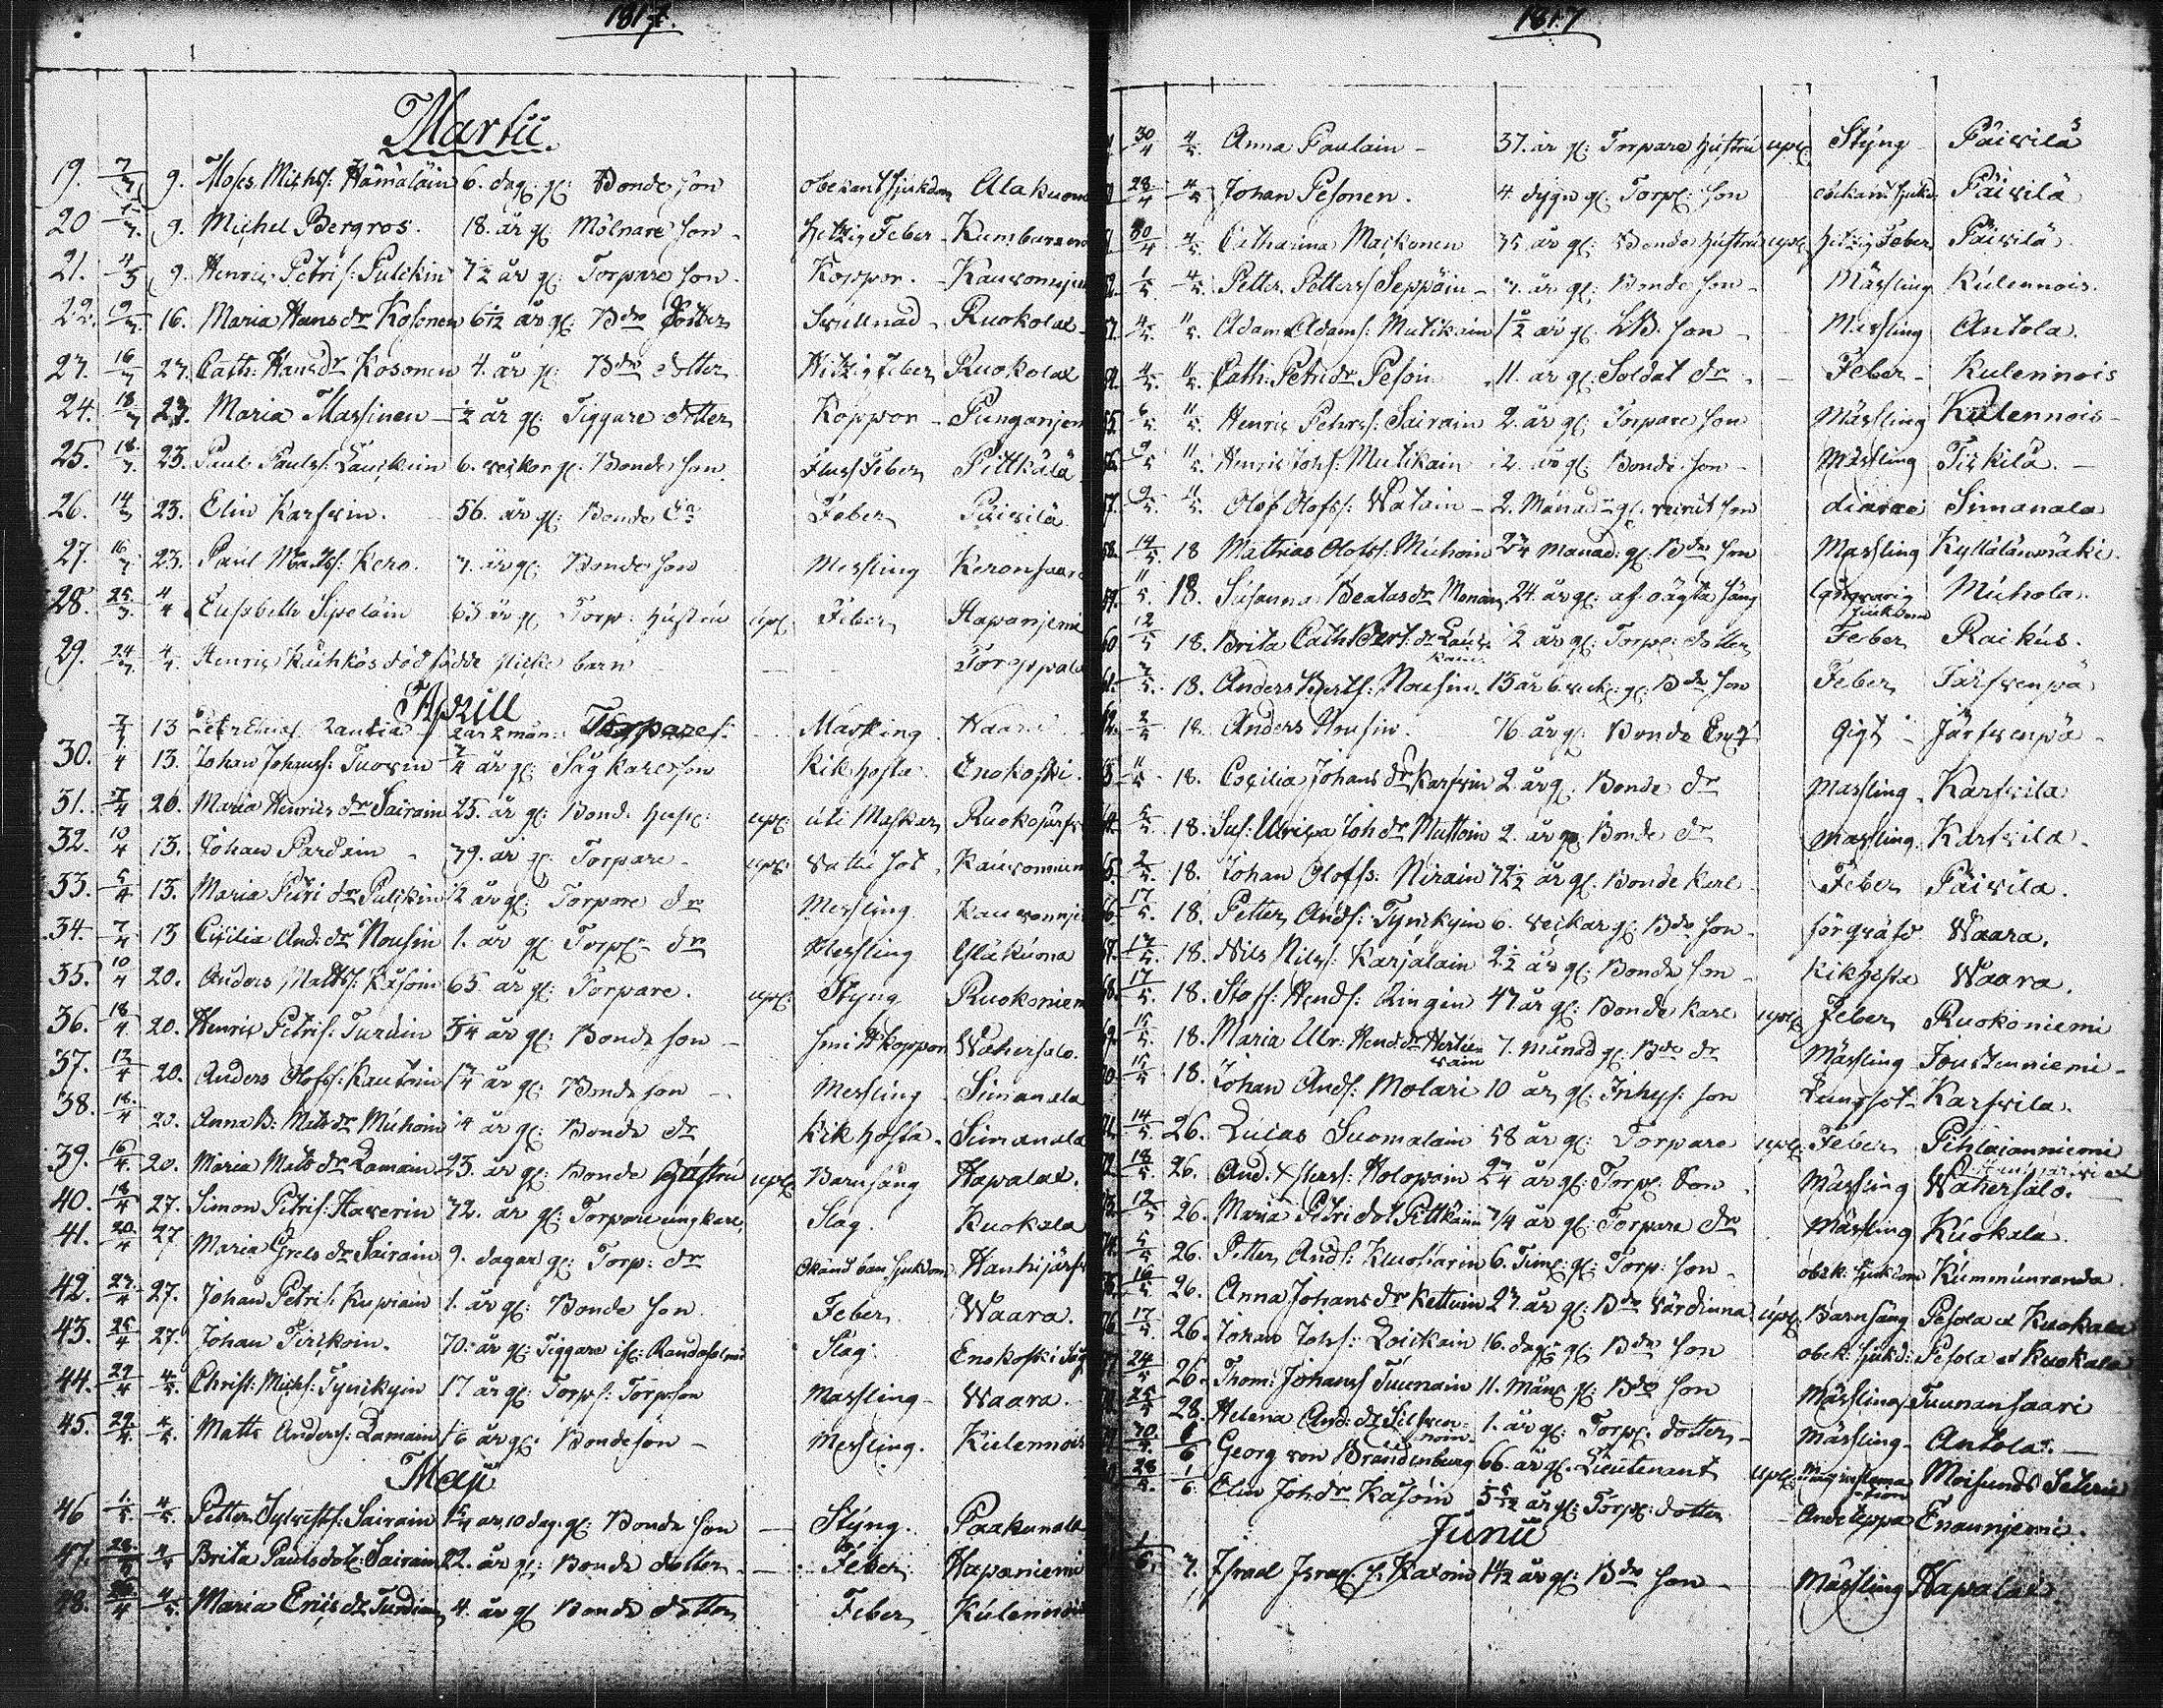 1817.
Martii.
19. 7/3 9. Moses Michs: Hämäläin 6. dag: gl: Bonde son obekant sjukdom Alakuona
20 9. Michel Bergros. 18. år gl: Mölnare son - hetzig Feber - Kumburan
21. 4/3 9. Henric Petri s: Pulckin 7 1/2 år gl: Torpare son. Koppor. - Kauvonnjemi
22. 9/3 16. Maria Hans dr Kosonen 6/12 år gl: Bde Dotter Svullnad - Ruokolax
23. 16/3 23. Cath: Hans dr Kosonen 4. år gl: Bde dotter Hitzig feber Ruokolax
24. 18/3 23. Maria Massinen - 1/2 år gl: Tiggare dotter Koppor - Punganjemi
25. 18/3 23. Paul Pauls: Lauckain 6. veckor gl: Bonde son. Fluss Feber Pittkälä
26. 14/3 23. Elin Karfvin. 56. år gl: Bonde Feber Päivilä
27. 16/3 23. Paul Matts: Kero. 3. år gl: Bonde son Messling Keronsaari
28. 25/3 4/4 Elisabetta Sipeläin 63 år gl: Torp: hustru upl: Feber Hapanjemi
29. 24/3 4/4 Henric Kuhkos död födde flicke barn Toroppala
Aprill
7/4 13 Rautia 2 år 2 mån: Torpare s: Massling. Waara
30. 4 13. Johan Johanss: Tuovin 3/4 år gl: Såg karl son Kik hosta. Enokoski.
31. 7/4 20. Maria Henrics dr Sairain 25. år gl: Bond. hust: upl: Ruokojärfvi
32. 10/4 13. Johan Pardain - 79. år gl: Torpare - upl: Vattu sot, Kauvonniemi
33. 5/4 13. Maria Petri dr Pulckin 1/2 år gl: Torpare dr Messling. Kauvonnjemi
34. 7/4 13 Cicilia And: dr Nousin 1. år gl: Torp: dr Messling Yläkuona
35. 10/4 20. Anders Matts: Käsoin 65 år gl: Torpare. upl: Styng Ruokoniemi
36. 18/4 20. Henric Petri s: Turdin 3/4 år gl: Bonde son - Smitt koppor Wahersalo.
37. 12/4 20. Anders Olofss: Kautoin 1 3/4 år gl: Bonde son - Messling - Simanala
38. 18/4 20. Anna B: Mats dr Muhoin 14 år gl: Bonde dr Kik hosta. Simanala
39. 16/4 20. Maria Mats dr Lamain 23. år gl: Bonde hustru upl: Barnsäng Hapalax.
40. 18/4 27. Simon Petri s: Haverin 72. år gl: Torpare ung karl, Slag. Kuokala
41. 20/4 27 Maria Grels dr Sairain 9. dagar gl: Torp: dr Okänd barn sjukdom, Hanhijärfvi
42. 23/4 27. Johan Petri s: Kupiain 1. år gl: Bonde son. Feber Waara.
43. 25/4 27. Johan Tirikoin. 70. år gl: Tiggare if: Randasalmi Slag. Enokoski Såg
44. 29/4 4/5. Christ: Michs: Tynckyin 17 år gl: Torp: Torpson Massling - Waara.
45. 29/4 4/5. Matts Anders: Lamain 1/6 år gl: Bonde son - Messling. Kulennois
Maji
46 1/5 4/5. Petter Sylvests: Sairain 1 3/4 år, 10 dag. gl: Bonde son - Styng. Paakunala
47. 4/5 Brita Pauls dot: Sairain 22. år gl: Bonde dotter - Feber. Hapaniemi
48. 26/4 4/5 Maria Erics dr Turdiain 4. år gl: Bonde dotter Feber Kulennois
1817
30/4 4/5. Anna Paulain - 37. år gl: Torpare hustru upl: Styng Päivilä
28/4 4/5 Johan Pesonen. 4. dygn gl: Torp: son obekant sjukd: Päivilä
30/4 4/5. Catharina Mackonen 35 år gl: Bonde hustru upl: hetzig Feber Päivilä.
1/5 4/5. Petter Petters: Seppäin - 3. år gl: Bonde son - Mässling Kulennois.
4/5. 11/5. Adam Adams: Mutikain 1/2 år gl: son - Massling Antola.
4/5. 11/5. Cath: Petri dr Pesoin. 11. år gl: Soldat dr - Feber - Kulennois
55. 6/5 11/5. Henric Pehrs: Sairain 2. år gl: Torpare son Mässling Kulennois -
56. 9/5 11/5. Henric Johs: Mutikain 2. år gl: Bonde son - Mässling Tiskilä. -
57. 9/5 11/5. Olof Olofss: Watain - 2. Månad gl: recrut son diaree Simanala
58. 14/5 18 Mathias Olofs: Muhoin 2 3/4 månad: gl: Bde son Massling Kyllälänmäki.
59. 11/5. 18. Susanna Beatas dr Monain 24. år gl: af oägta säng långvarig sjukdom Muhola.
60 12/5 18. Brita Cath Bert: dr Lauckain. 1/2 år gl: Torp: dotter Feber Raikus.
61. 7/5. 18. Anders Berts: Nousin. 13 år 6 veck: gl: Bde son Feber Järfvenpä
62. 2/5 18. Anders Nousin. 76. år gl: Bonde Gigt - Järfvenpä -
11/5 18. Cecilia Johans dr Karfvin 2. år gl: Bonde dr Massling. Karfvila
18. Sus: Ulrica Joh dr Muttoin 2. år gl: Bonde dr Massling. Karfvila.
65. 9/5. 18. Johan Olofs: Nirain 72 1/2 år gl: Bonde karl - Feber Päivila.
66. 17/5. 18. Petter Ands: Tynckyin 6. veckor gl: Bde son - Waara.
18. Nils Nils: Karjalain 2 1/2 år gl: Bonde son - Kikhosta Waara.
17/5. 18. Staff: Hends: Ringin 47 år gl: Bonde karl upl: Feber Ruokoniemi
15/5. 18. Maria Ulr: Hend: dr Hertuwain 7. månad gl: Bde dr Mässling Joustenniemi -
15/5 18. Johan Ands: Molari 10 år gl: Inhys: son Lungsot - Karfvila.
14/5. 26. Lucas Suomalain 58 år gl: Torpare upl: Feber Pihlajanniemi
18/5 26. And: Holopain 2 3/4 år gl: Torp: Son Mässling Wahersalo.
12/5 26. Maria Petri dot Pittkäin 3/4 år gl: Torpare dr Mässling Kuokala.
5/5 26. Petter Ands: Kuokarin 6. Tim: gl: Torp: son - obek: sjukdom Kummunranda.
16/5 26. Anna Johans dr Kettuin 23. år gl: Bde värdinna upl: Barnsäng Pesola et Kuokala
17/5 26. Johan Johs: Loickain 16. dag: gl: Bde son obek: sjukd: Pesola et Kuokala
24/5 26. Thom: Johanss Tuunain 11. Mån: gl: Bde son Mässling Tuunansaari
25/5 28. Helena And: dr Silfvennoin. 1. år gl: Torp: dotter - Mässling - Antola. -
30/5. 1/6 Georg von Brandenburg 66. år gl: Lieutenant upl: Lunginflamation Moisunds Säterie
28/5. 1/6. Elin Joh: dr Käsoin 5 5/12 år gl: Torp: dotter Andeteppa Enaunjemi.
Junii
1/6. 7. Israel Israels s: Kaxoin 1 1/12 år gl: Bde son - Mässling Hapalax.